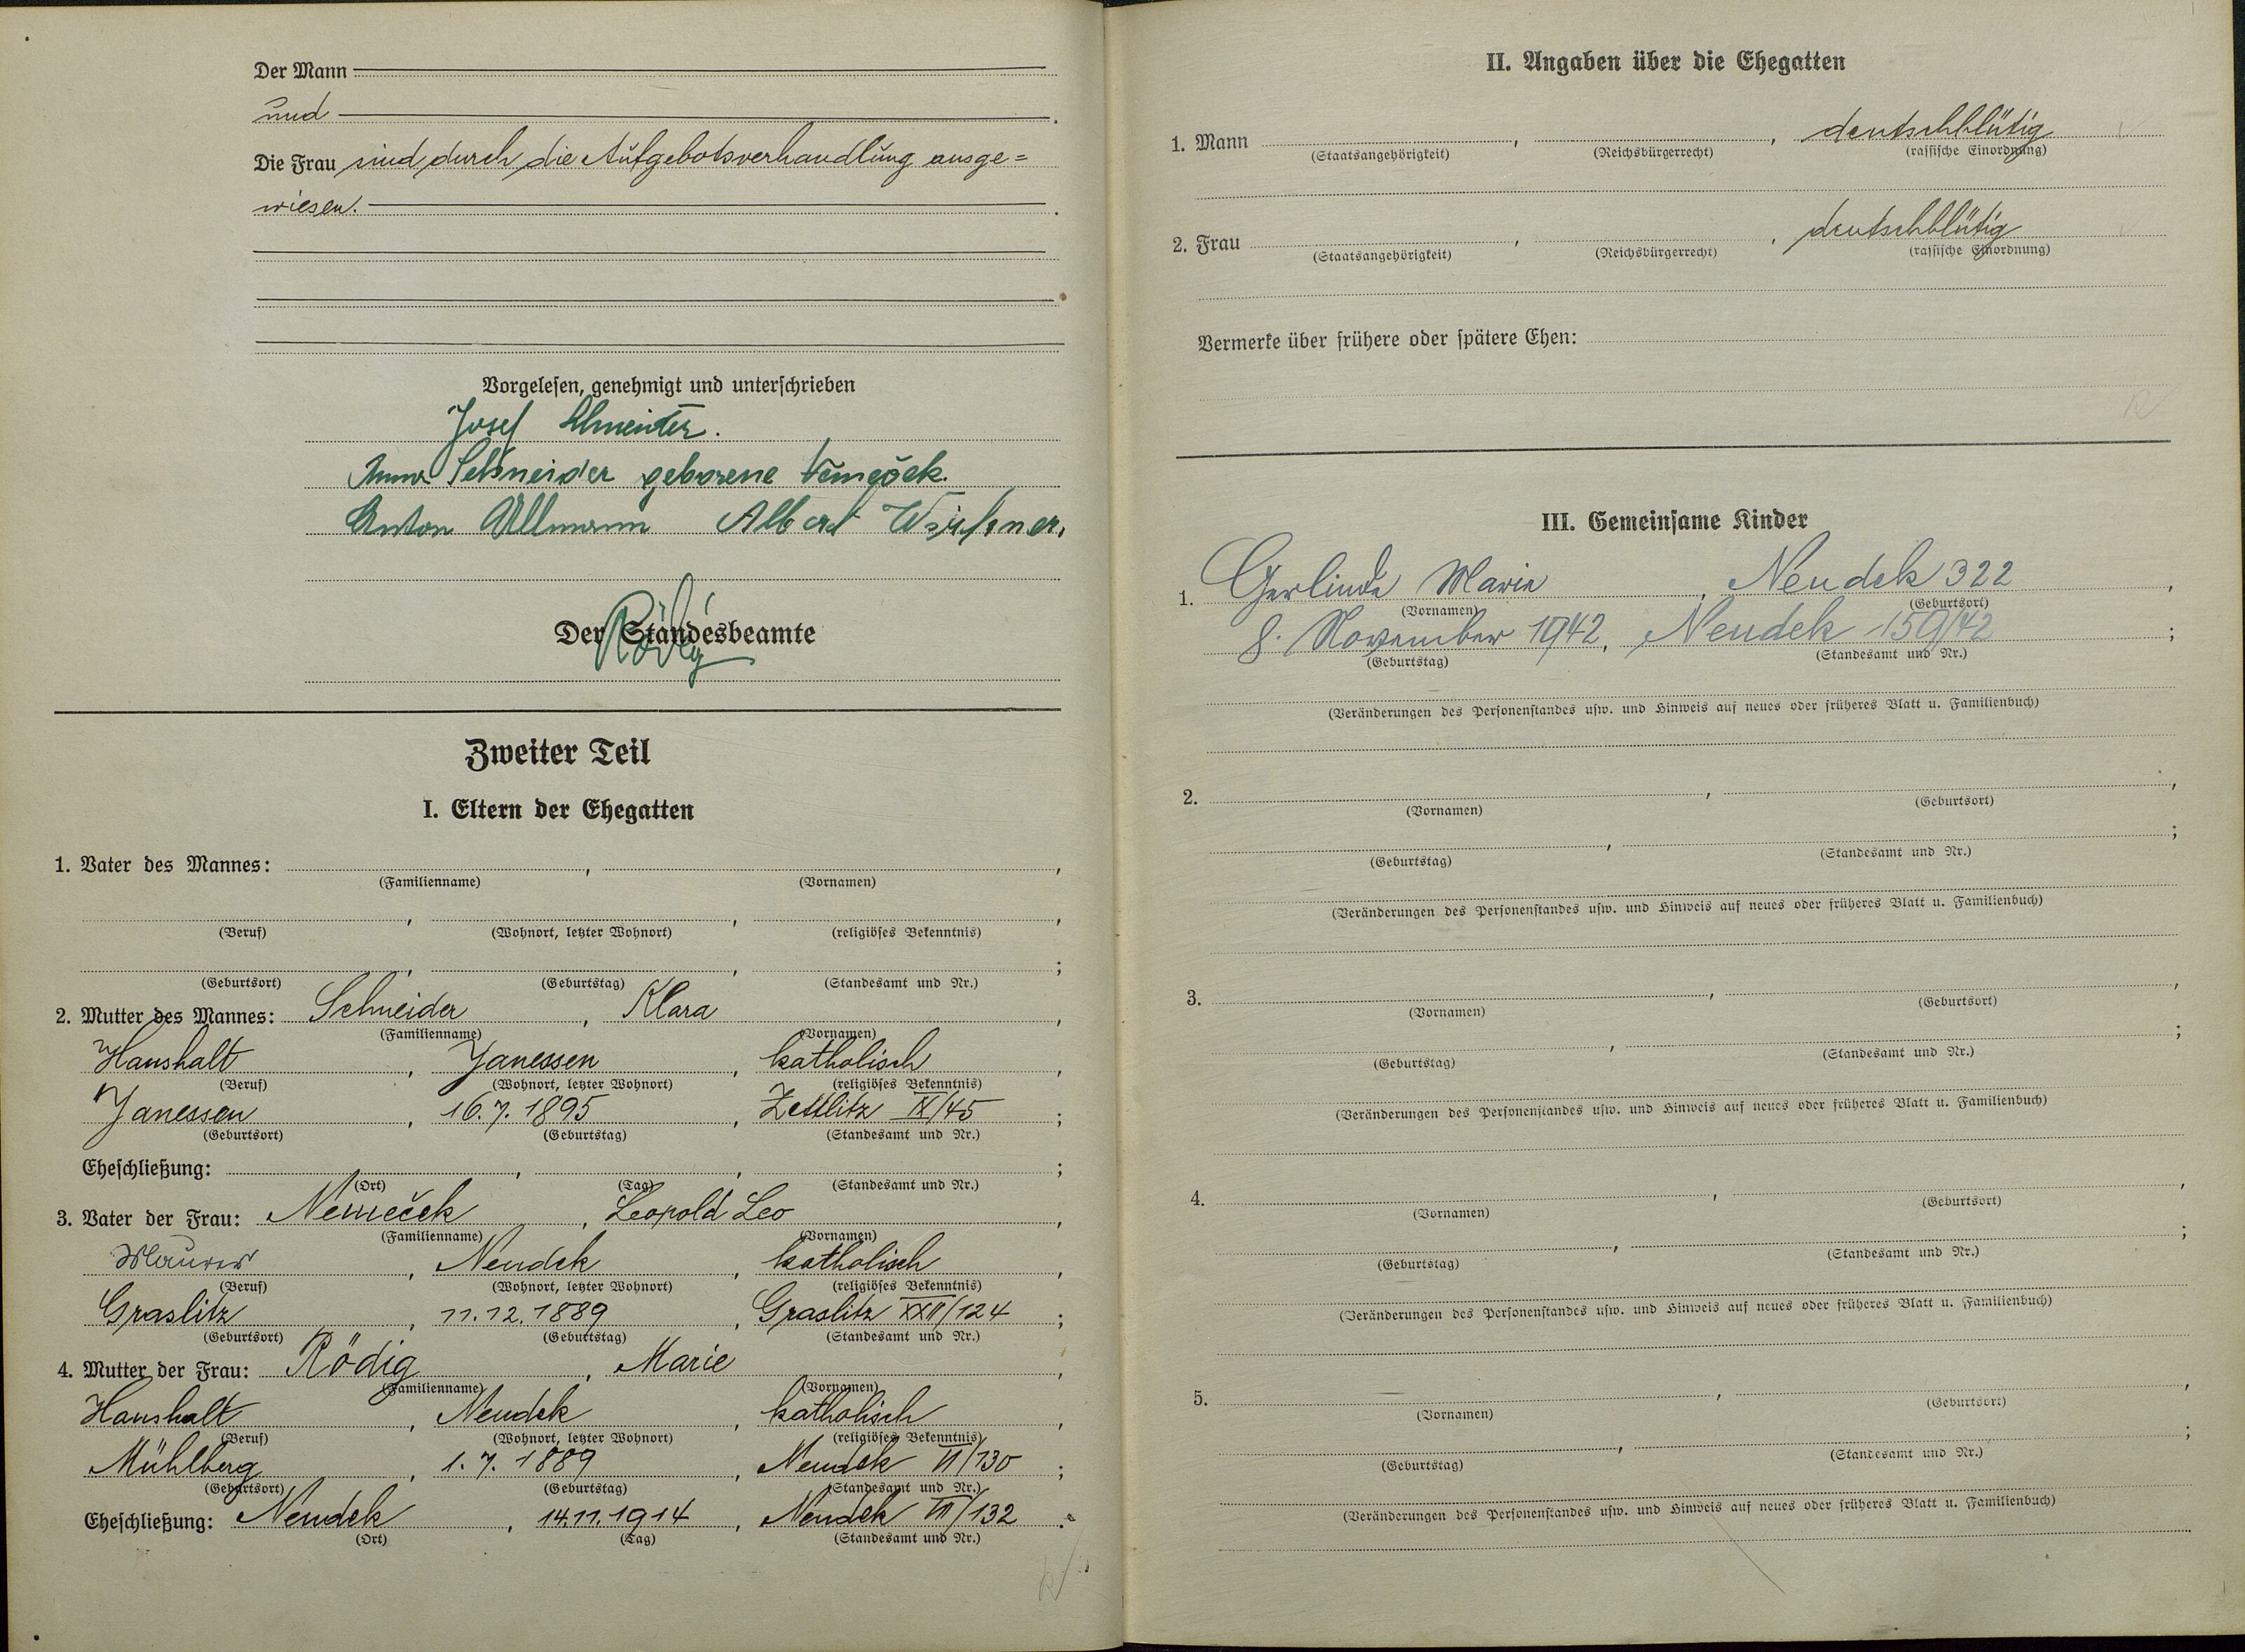 Der Mann
und
Die Frau sind durch die Aufgebotsverhandlung ausge=
wiesen.
Vorgelesen, genehmigt und unterschrieben
Josef Schneider.
Anna Schneider geborene Němeček.
Anton Ullmann Albert
Der Standesbeamte
Rödig
Zweiter Teil
I. Eltern der Ehegatten
1. Vater des Mannes: , ,
(Familienname) (Vornamen)
, , ,
(Beruf) (Wohnort, letzter Wohnort) (religiöses Bekenntnis)
, , ;
(Geburtsort) (Geburtstag) (Standesamt und Nr.)
2. Mutter des Mannes: Schneider , Klara ,
(Familienname) (Vornamen)
Haushalt , Janessen , katholisch ,
(Beruf) (Wohnort, letzter Wohnort) (religiöses Bekenntnis)
Janessen , 16.7.1895 , Zettlitz IX/45 ;
(Geburtsort) (Geburtstag) (Standesamt und Nr.)
Eheschließung: , , ;
(Ort) (Tag) (Standesamt und Nr.)
3. Vater der Frau: Nemeček , Leopold Leo ,
(Familienname) (Vornamen)
Maurer , Neudek , katholisch ,
(Beruf) (Wohnort, letzter Wohnort) (religiöses Bekenntnis)
Graslitz , 11.12.1889 , Graslitz XXII/124 ;
(Geburtsort) (Geburtstag) (Standesamt und Nr.)
4. Mutter der Frau: Rödig , Marie ,
(Familienname) (Vornamen)
Haushalt , Neudek , katholisch ,
(Beruf) (Wohnort, letzter Wohnort) (religiöses Bekenntnis)
Mühlberg , 1.7.1889 , Neudek VI/130 ;
(Geburtsort) (Geburtstag) (Standesamt und Nr.)
Eheschließung: Neudek , 14.11.1914 , Neudek VII/132 .
(Ort) (Tag) (Standesamt und Nr.)
II. Angaben über die Ehegatten
1. Mann , , deutschblütig
(Staatsangehörigkeit) (Reichsbürgerrecht) (rassische Einordnung)
2. Frau , , deutschblütig
(Staatsangehörigkeit) (Reichsbürgerrecht) (rassische Einordnung)
Vermerke über frühere oder spätere Ehen:
III. Gemeinsame Kinder
1. Gerlinde Marie , Neudek 322 ,
(Vornamen) (Geburtsort)
8. November 1942 , Neudek 159/42 ;
(Geburtstag) (Standesamt und Nr.)
(Veränderungen des Personenstandes usw. und Hinweis auf neues oder früheres Blatt u. Familienbuch)
2. , ,
(Vornamen) (Geburtsort)
, ;
(Geburtstag) (Standesamt und Nr.)
(Veränderungen des Personenstandes usw. und Hinweis auf neues oder früheres Blatt u. Familienbuch)
3. , ,
(Vornamen) (Geburtsort)
, ;
(Geburtstag) (Standesamt und Nr.)
(Veränderungen des Personenstandes usw. und Hinweis auf neues oder früheres Blatt u. Familienbuch)
4. , ,
(Vornamen) (Geburtsort)
, ;
(Geburtstag) (Standesamt und Nr.)
(Veränderungen des Personenstandes usw. und Hinweis auf neues oder früheres Blatt u. Familienbuch)
5. , ,
(Vornamen) (Geburtsort)
, ;
(Geburtstag) (Standesamt und Nr.)
(Veränderungen des Personenstandes usw. und Hinweis auf neues oder früheres Blatt u. Familienbuch)